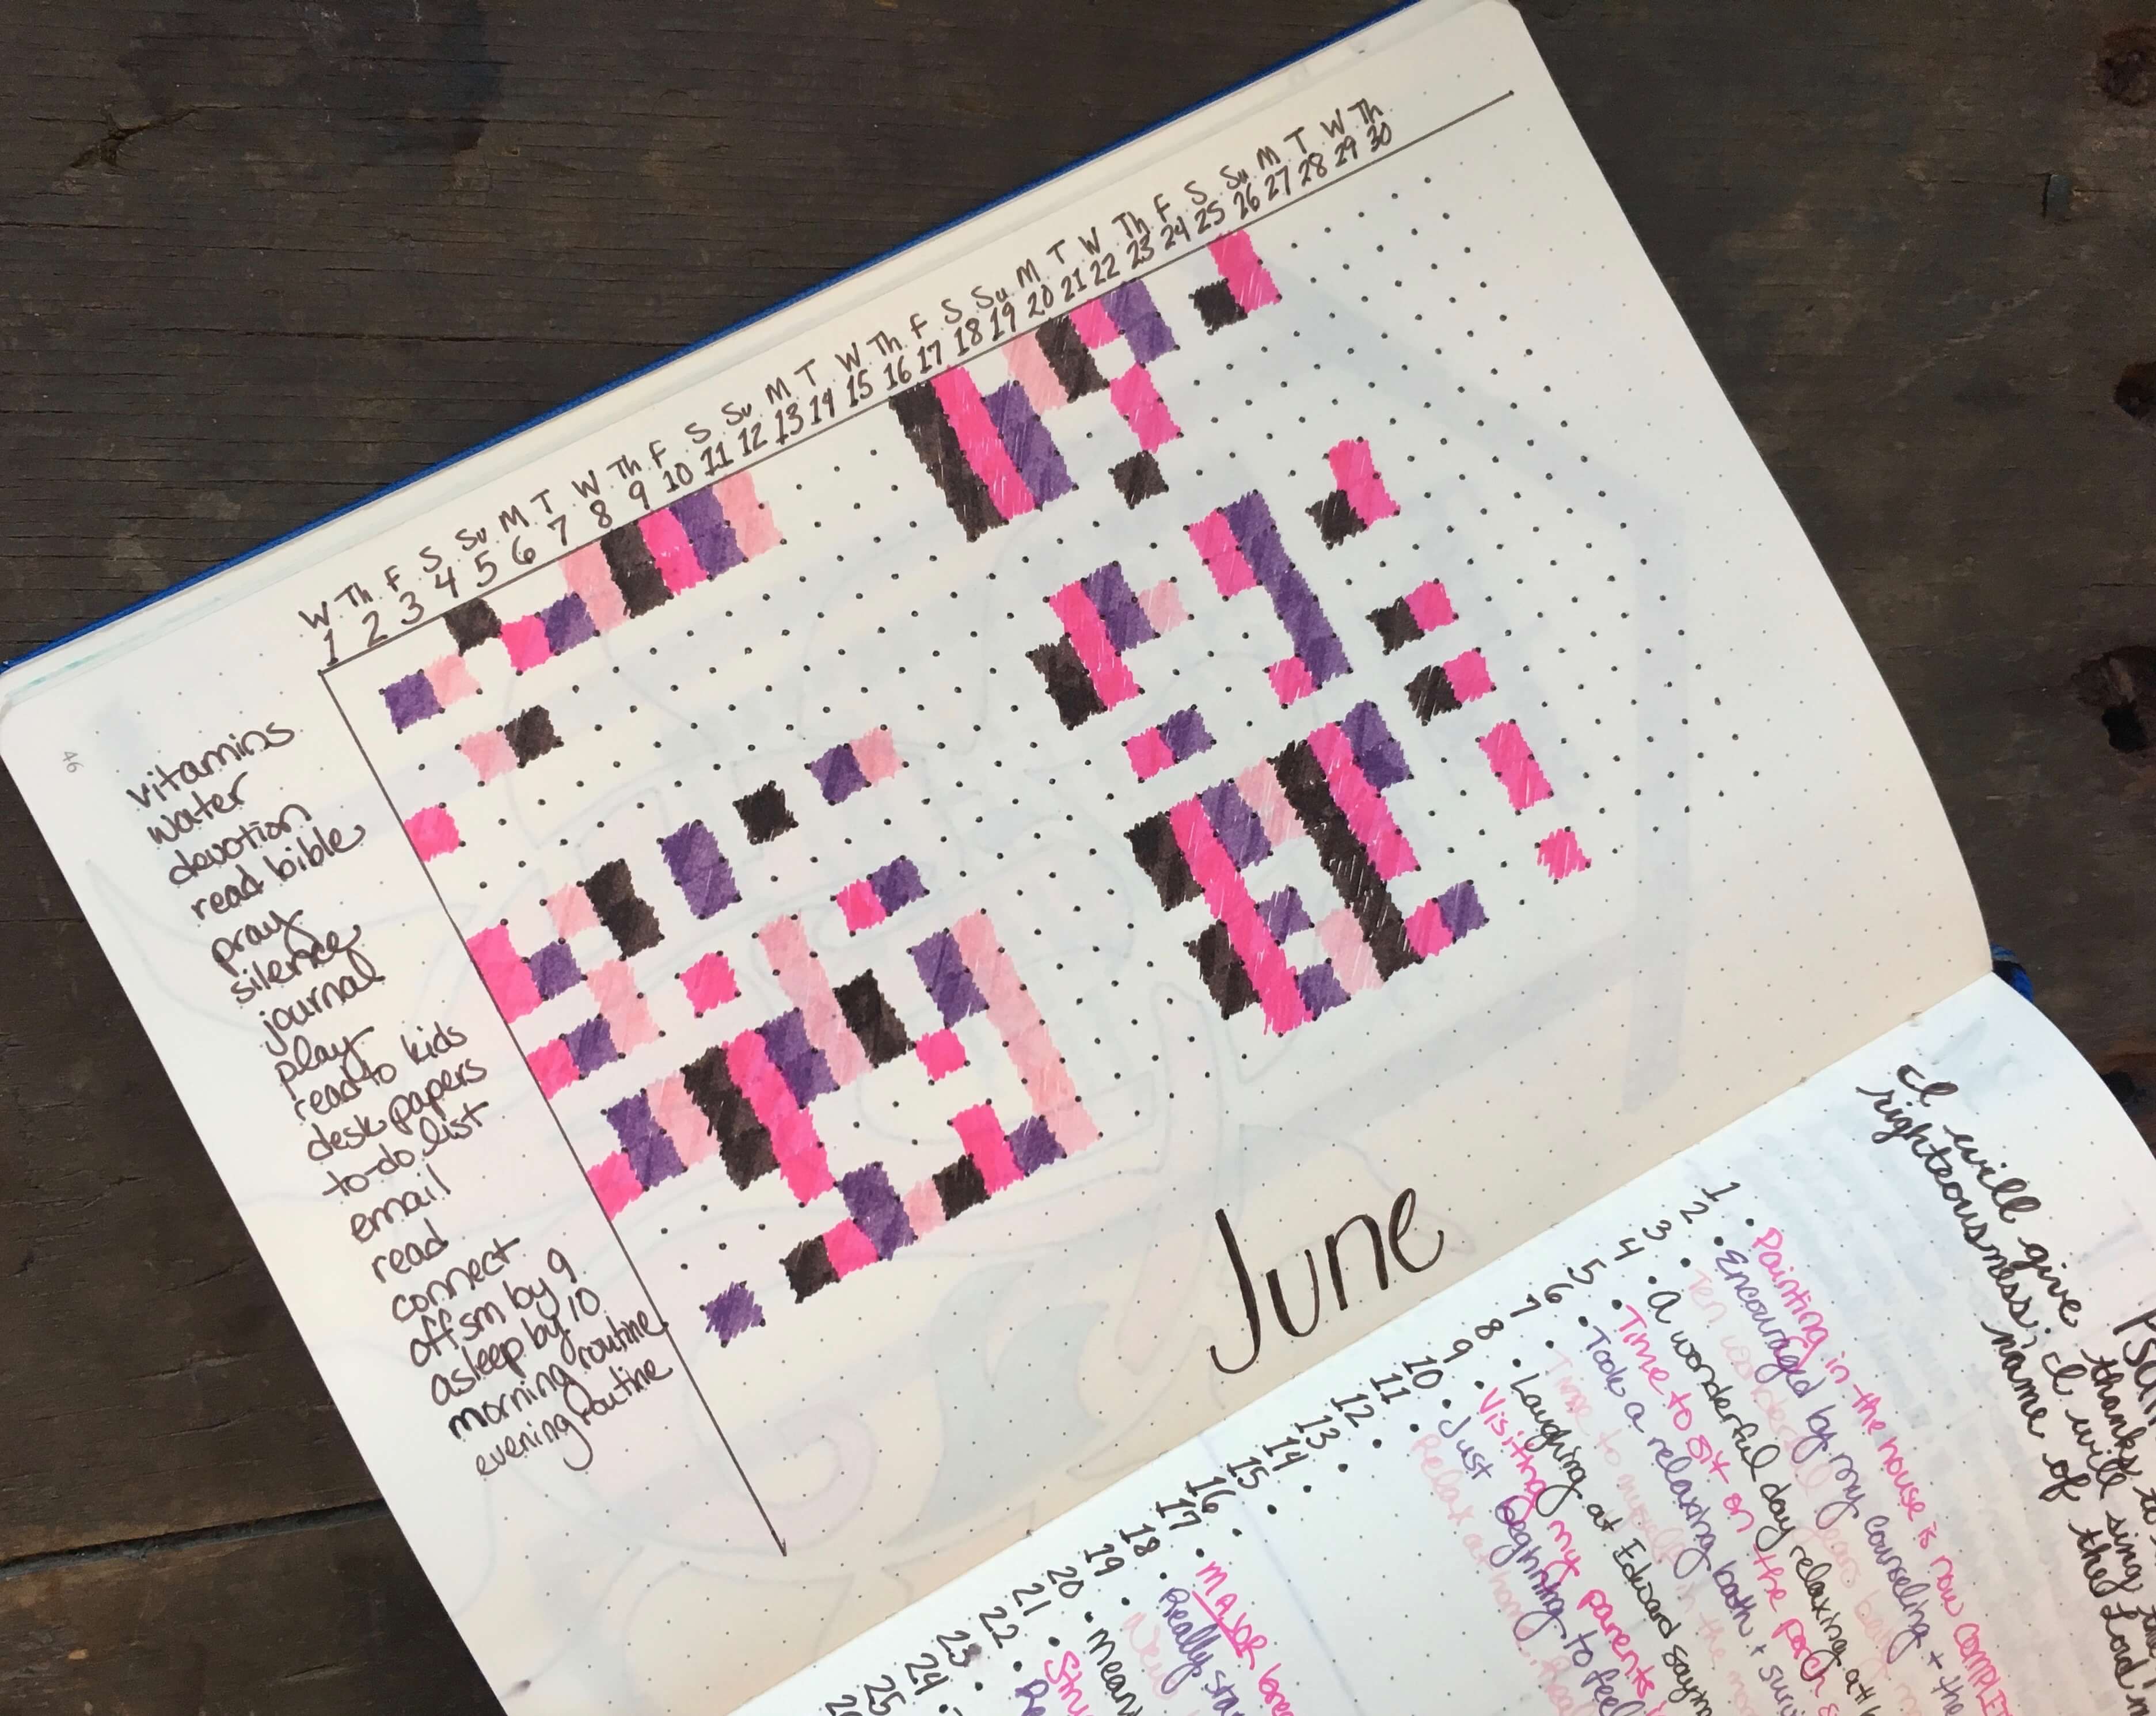 W Th F S Su M T W Th F S Su M T W Th F S Su M T W Th F S Su M T W Th
1 2 3 4 5 6 7 8 9 10 11 12 13 14 15 16 17 18 19 20 21 22 23 24 25 26 27 28 29 30
46
vitamins
water
devotion
read bible
pray
silence
journal
play
read to kids
desk papers
to-do list
email
read
connect
off sm by 9
asleep by 10
morning routine
evening routine
June
I will give thanks to
righteousness; I will sing
name of the Lord
1 • Painting in the house is now
2 • Encouraged by my counseling + the
3 • Ten
4 • A wonderful day relaxing at
5 • Time to sit on the porch
6 • Took a relaxing bath +
7 • Time to myself in the
8 • Laughing at Edward
9 • Visiting my parents
10 • Just beginning to feel
11 • Relax at home
12 •
13 •
14 •
15 •
16 •
17 • MAJOR
18 • Really
19 •
20 •
21 •
22 •
23
24
25